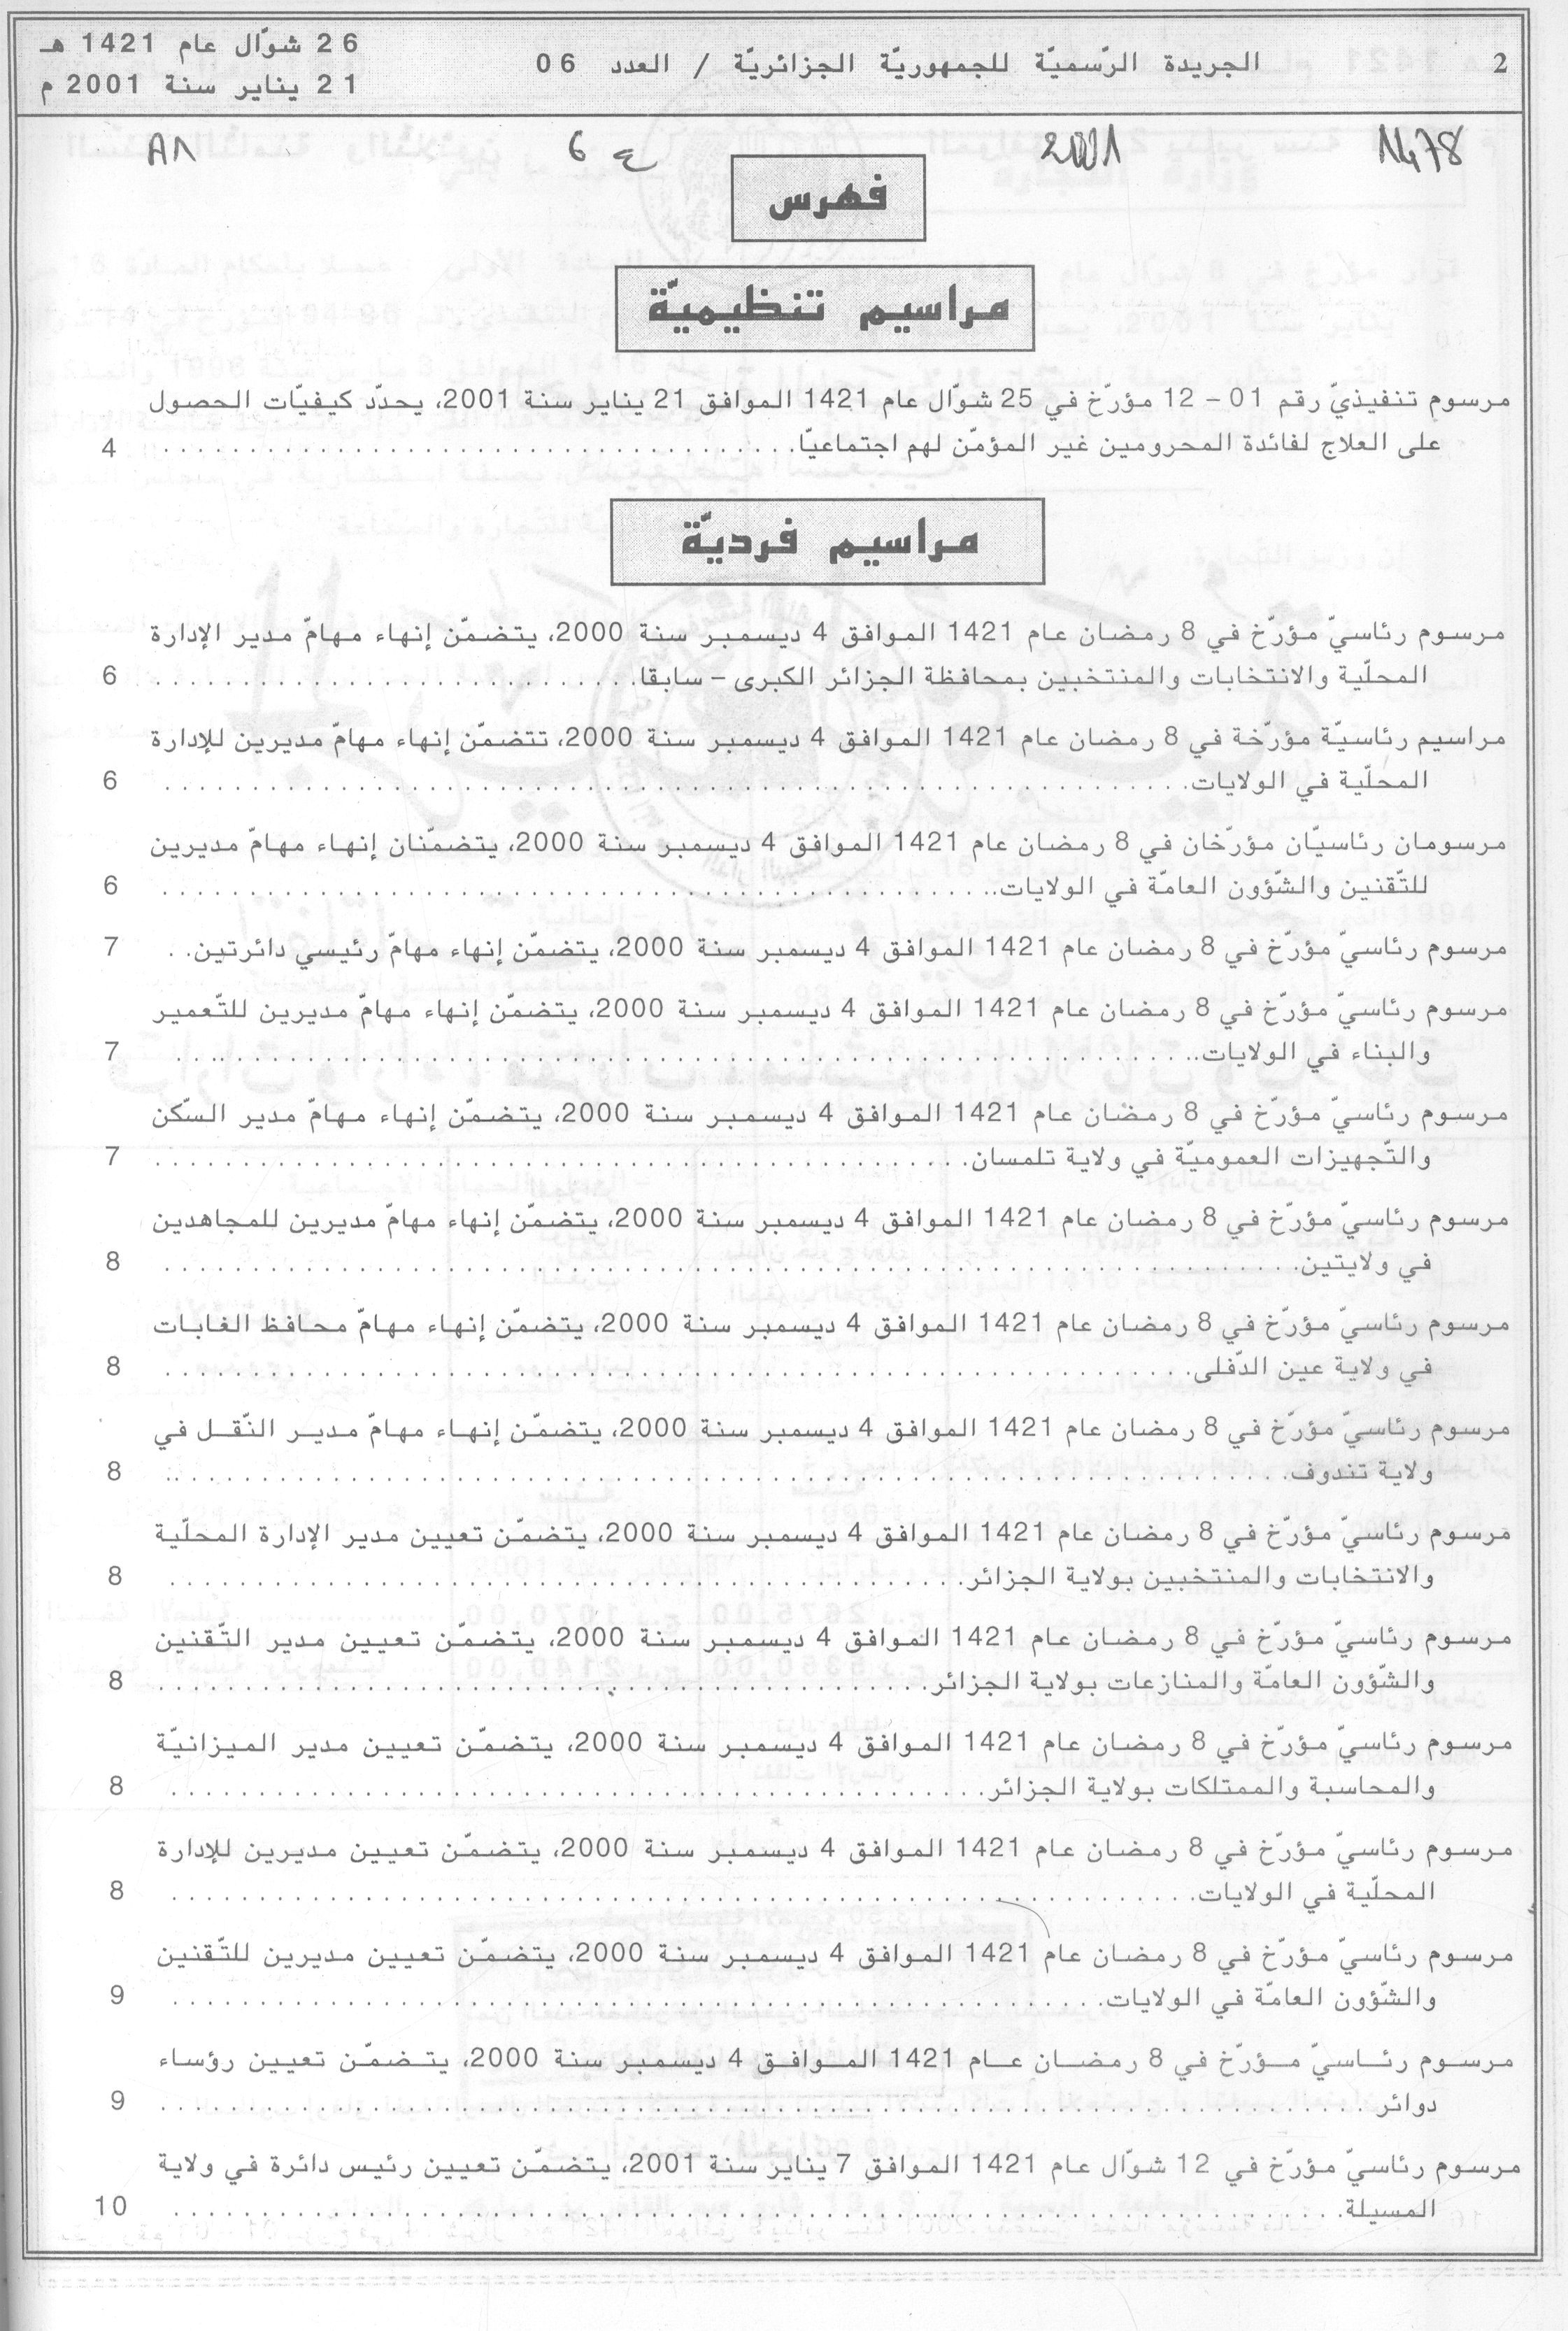 2
الجريدة الرّسميّة للجمهوريّة الجزائريّة / العدد 06
26 شوّال عام 1421 هـ
21 يناير سنة 2001 م
1478 2001 ع 6 A1
فهرس
مراسيم تنظيميّة
مرسوم تنفيذيّ رقم 01 – 12 مؤرّخ في 25 شوّال عام 1421 الموافق 21 يناير سنة 2001، يحدّد كيفيّات الحصول
على العلاج لفائدة المحرومين غير المؤمّن لهم اجتماعيّا. . . . . . . . . . 4
مراسيم فرديّة
مرسوم رئاسيّ مؤرّخ في 8 رمضان عام 1421 الموافق 4 ديسمبر سنة 2000، يتضمّن إنهاء مهامّ مدير الإدارة
المحلّية والانتخابات والمنتخبين بمحافظة الجزائر الكبرى – سابقا. . . . . . . . . . 6
مراسيم رئاسيّة مؤرّخة في 8 رمضان عام 1421 الموافق 4 ديسمبر سنة 2000، تتضمّن إنهاء مهامّ مديرين للإدارة
المحلّية في الولايات. . . . . . . . . . 6
مرسومان رئاسيّان مؤرّخان في 8 رمضان عام 1421 الموافق 4 ديسمبر سنة 2000، يتضمّنان إنهاء مهامّ مديرين
للتّقنين والشّؤون العامّة في الولايات. . . . . . . . . . 6
مرسوم رئاسيّ مؤرّخ في 8 رمضان عام 1421 الموافق 4 ديسمبر سنة 2000، يتضمّن إنهاء مهامّ رئيسي دائرتين. . . 7
مرسوم رئاسيّ مؤرّخ في 8 رمضان عام 1421 الموافق 4 ديسمبر سنة 2000، يتضمّن إنهاء مهامّ مديرين للتّعمير
والبناء في الولايات. . . . . . . . . . 7
مرسوم رئاسيّ مؤرّخ في 8 رمضان عام 1421 الموافق 4 ديسمبر سنة 2000، يتضمّن إنهاء مهامّ مدير السّكن
والتّجهيزات العموميّة في ولاية تلمسان. . . . . . . . . . 7
مرسوم رئاسيّ مؤرّخ في 8 رمضان عام 1421 الموافق 4 ديسمبر سنة 2000، يتضمّن إنهاء مهامّ مديرين للمجاهدين
في ولايتين. . . . . . . . . . 8
مرسوم رئاسيّ مؤرّخ في 8 رمضان عام 1421 الموافق 4 ديسمبر سنة 2000، يتضمّن إنهاء مهامّ محافظ الغابات
في ولاية عين الدّفلى. . . . . . . . . . 8
مرسوم رئاسيّ مؤرّخ في 8 رمضان عام 1421 الموافق 4 ديسمبر سنة 2000، يتضمّن إنهاء مهامّ مدير النّقل في
ولاية تندوف. . . . . . . . . . 8
مرسوم رئاسيّ مؤرّخ في 8 رمضان عام 1421 الموافق 4 ديسمبر سنة 2000، يتضمّن تعيين مدير الإدارة المحلّية
والانتخابات والمنتخبين بولاية الجزائر. . . . . . . . . . 8
مرسوم رئاسيّ مؤرّخ في 8 رمضان عام 1421 الموافق 4 ديسمبر سنة 2000، يتضمّن تعيين مدير التّقنين
والشّؤون العامّة والمنازعات بولاية الجزائر. . . . . . . . . . 8
مرسوم رئاسيّ مؤرّخ في 8 رمضان عام 1421 الموافق 4 ديسمبر سنة 2000، يتضمّن تعيين مدير الميزانيّة
والمحاسبة والممتلكات بولاية الجزائر. . . . . . . . . . 8
مرسوم رئاسيّ مؤرّخ في 8 رمضان عام 1421 الموافق 4 ديسمبر سنة 2000، يتضمّن تعيين مديرين للإدارة
المحلّية في الولايات. . . . . . . . . . 8
مرسوم رئاسيّ مؤرّخ في 8 رمضان عام 1421 الموافق 4 ديسمبر سنة 2000، يتضمّن تعيين مديرين للتّقنين
والشّؤون العامّة في الولايات. . . . . . . . . . 9
مرسوم رئاسيّ مؤرّخ في 8 رمضان عام 1421 الموافق 4 ديسمبر سنة 2000، يتضمّن تعيين رؤساء
دوائر . . . . . . . . . . 9
مرسوم رئاسيّ مؤرّخ في 12 شوّال عام 1421 الموافق 7 يناير سنة 2001، يتضمّن تعيين رئيس دائرة في ولاية
المسيلة. . . . . . . . . . 10